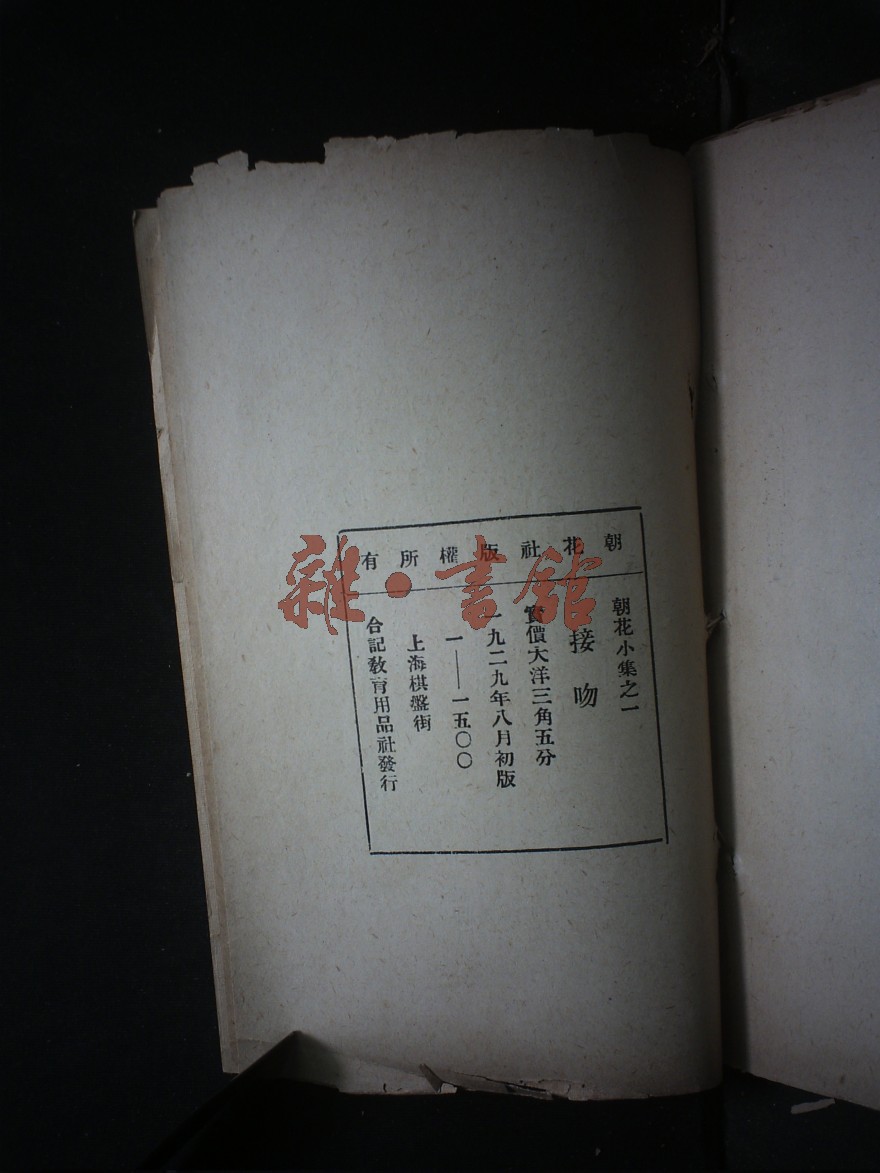 朝花社版權所有
朝花小集之一
接吻
實價大洋三角五分
一九二九年八月初版
一——一五〇〇
上海棋盤街
合記敎育用品社發行
雜·書館